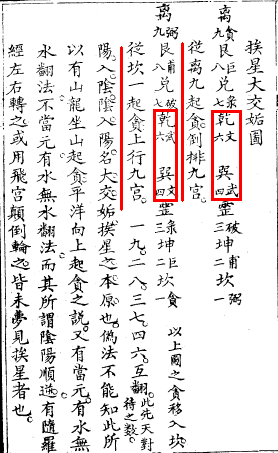 挨星大交姤圖
離九貪 艮八巨 兌七祿 乾六文 巽四武 震三破 坤二甫 坎一弼
從離九起貪倒排九宮。
離九弼 艮八甫 兌七破 乾六武 巽四文 震三祿 坤二巨 坎一貪 以上圖之貪移入坎
從坎一起貪上行九宮。 一九二八三七四六互翻。此先天對待之數。
陽入陰。陰入陽。名大交姤。挨星之本原也。偽法不能知此所
以有山龍坐山起貪平洋向上起貪之說。又有當元有水無
水翻法不當元有水無水翻法。而其所謂陰陽順逆。有隨羅
經左右轉之。或用飛宮顛倒輪之。皆未夢見挨星者也。